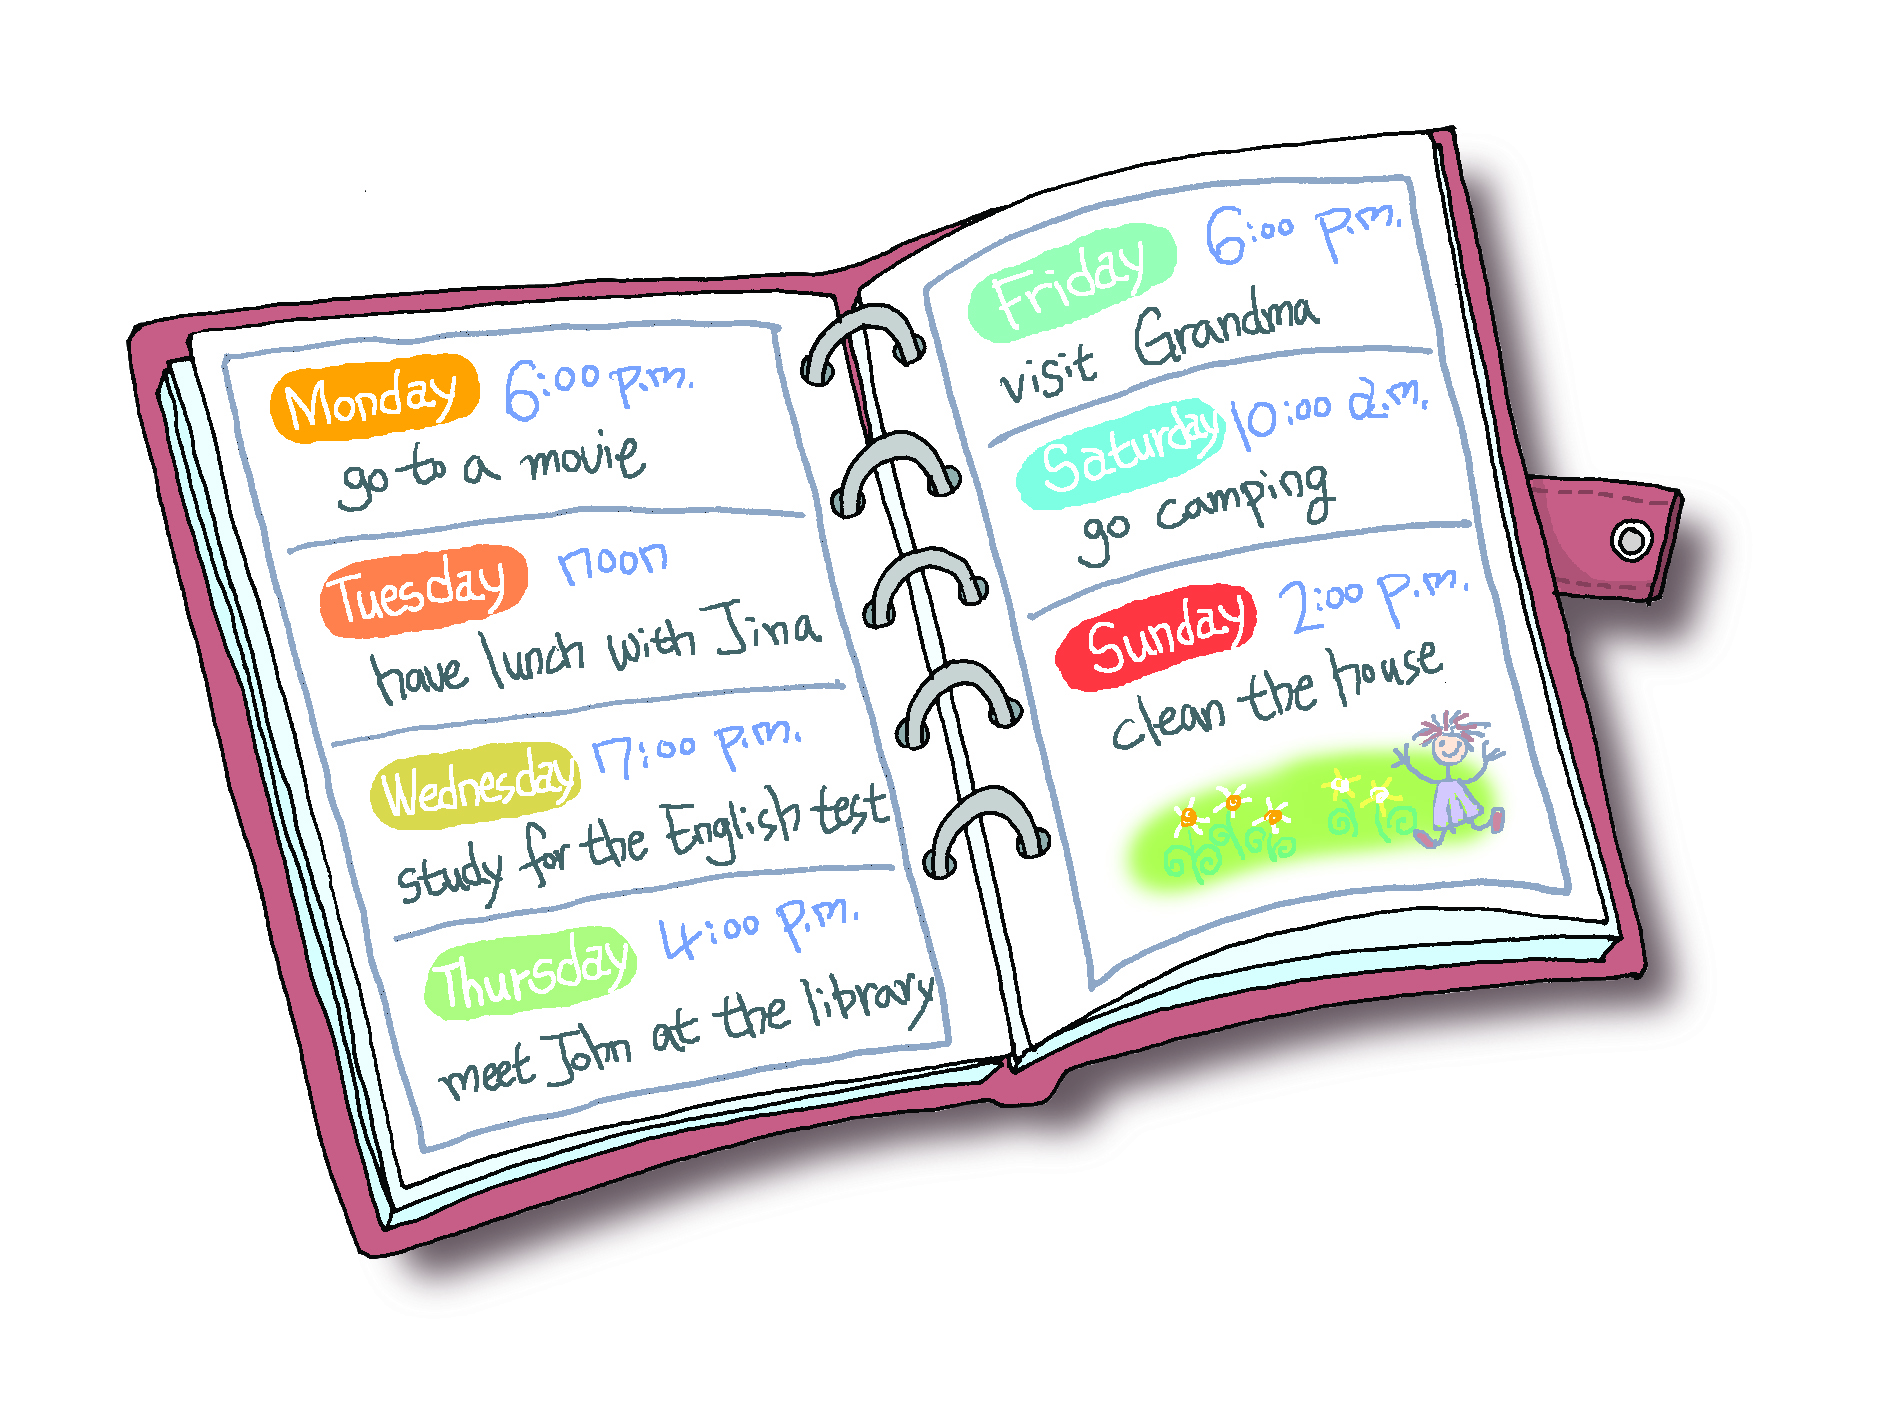 Monday 6:00 p.m.
go to a movie
Tuesday noon
have lunch with Jina
Wednesday 7:00 p.m.
study for the English test
Thursday 4:00 p.m.
meet John at the library
Friday 6:00 p.m.
visit Grandma
Saturday 10:00 a.m.
go camping
Sunday 2:00 p.m.
clean the house